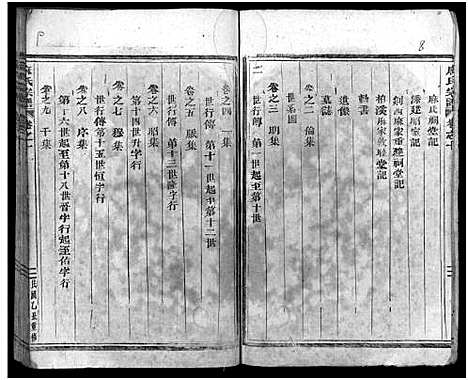 麻氏祠堂記
續建祠堂記
劍西麻家重建祠堂記
柏溪麻家敦睦堂記
遺像
墓誌
卷之二 倫集
世系圖
卷之三 集
世行傳 第一世起至第十世
卷之四 集
世行傳 第十一世起至第十二世
卷之五 集
世行傳 第十三世 字行
卷之六 昭集
第十四世升字行
卷之七 穆集
世行傳 第十五世恒字行
卷之八 序集
第十六世起至第十八世晉字行起至佑字行
卷之九 千集
民國乙丑重修
8